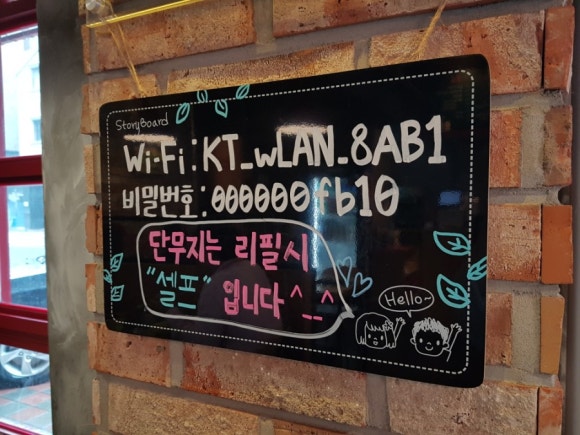 StoryBoard
Wi-Fi : KT_WLAN_8AB1
비밀번호 : 000000fb10
단무지는 리필시
"셀프" 입니다 ^_^
Hello~